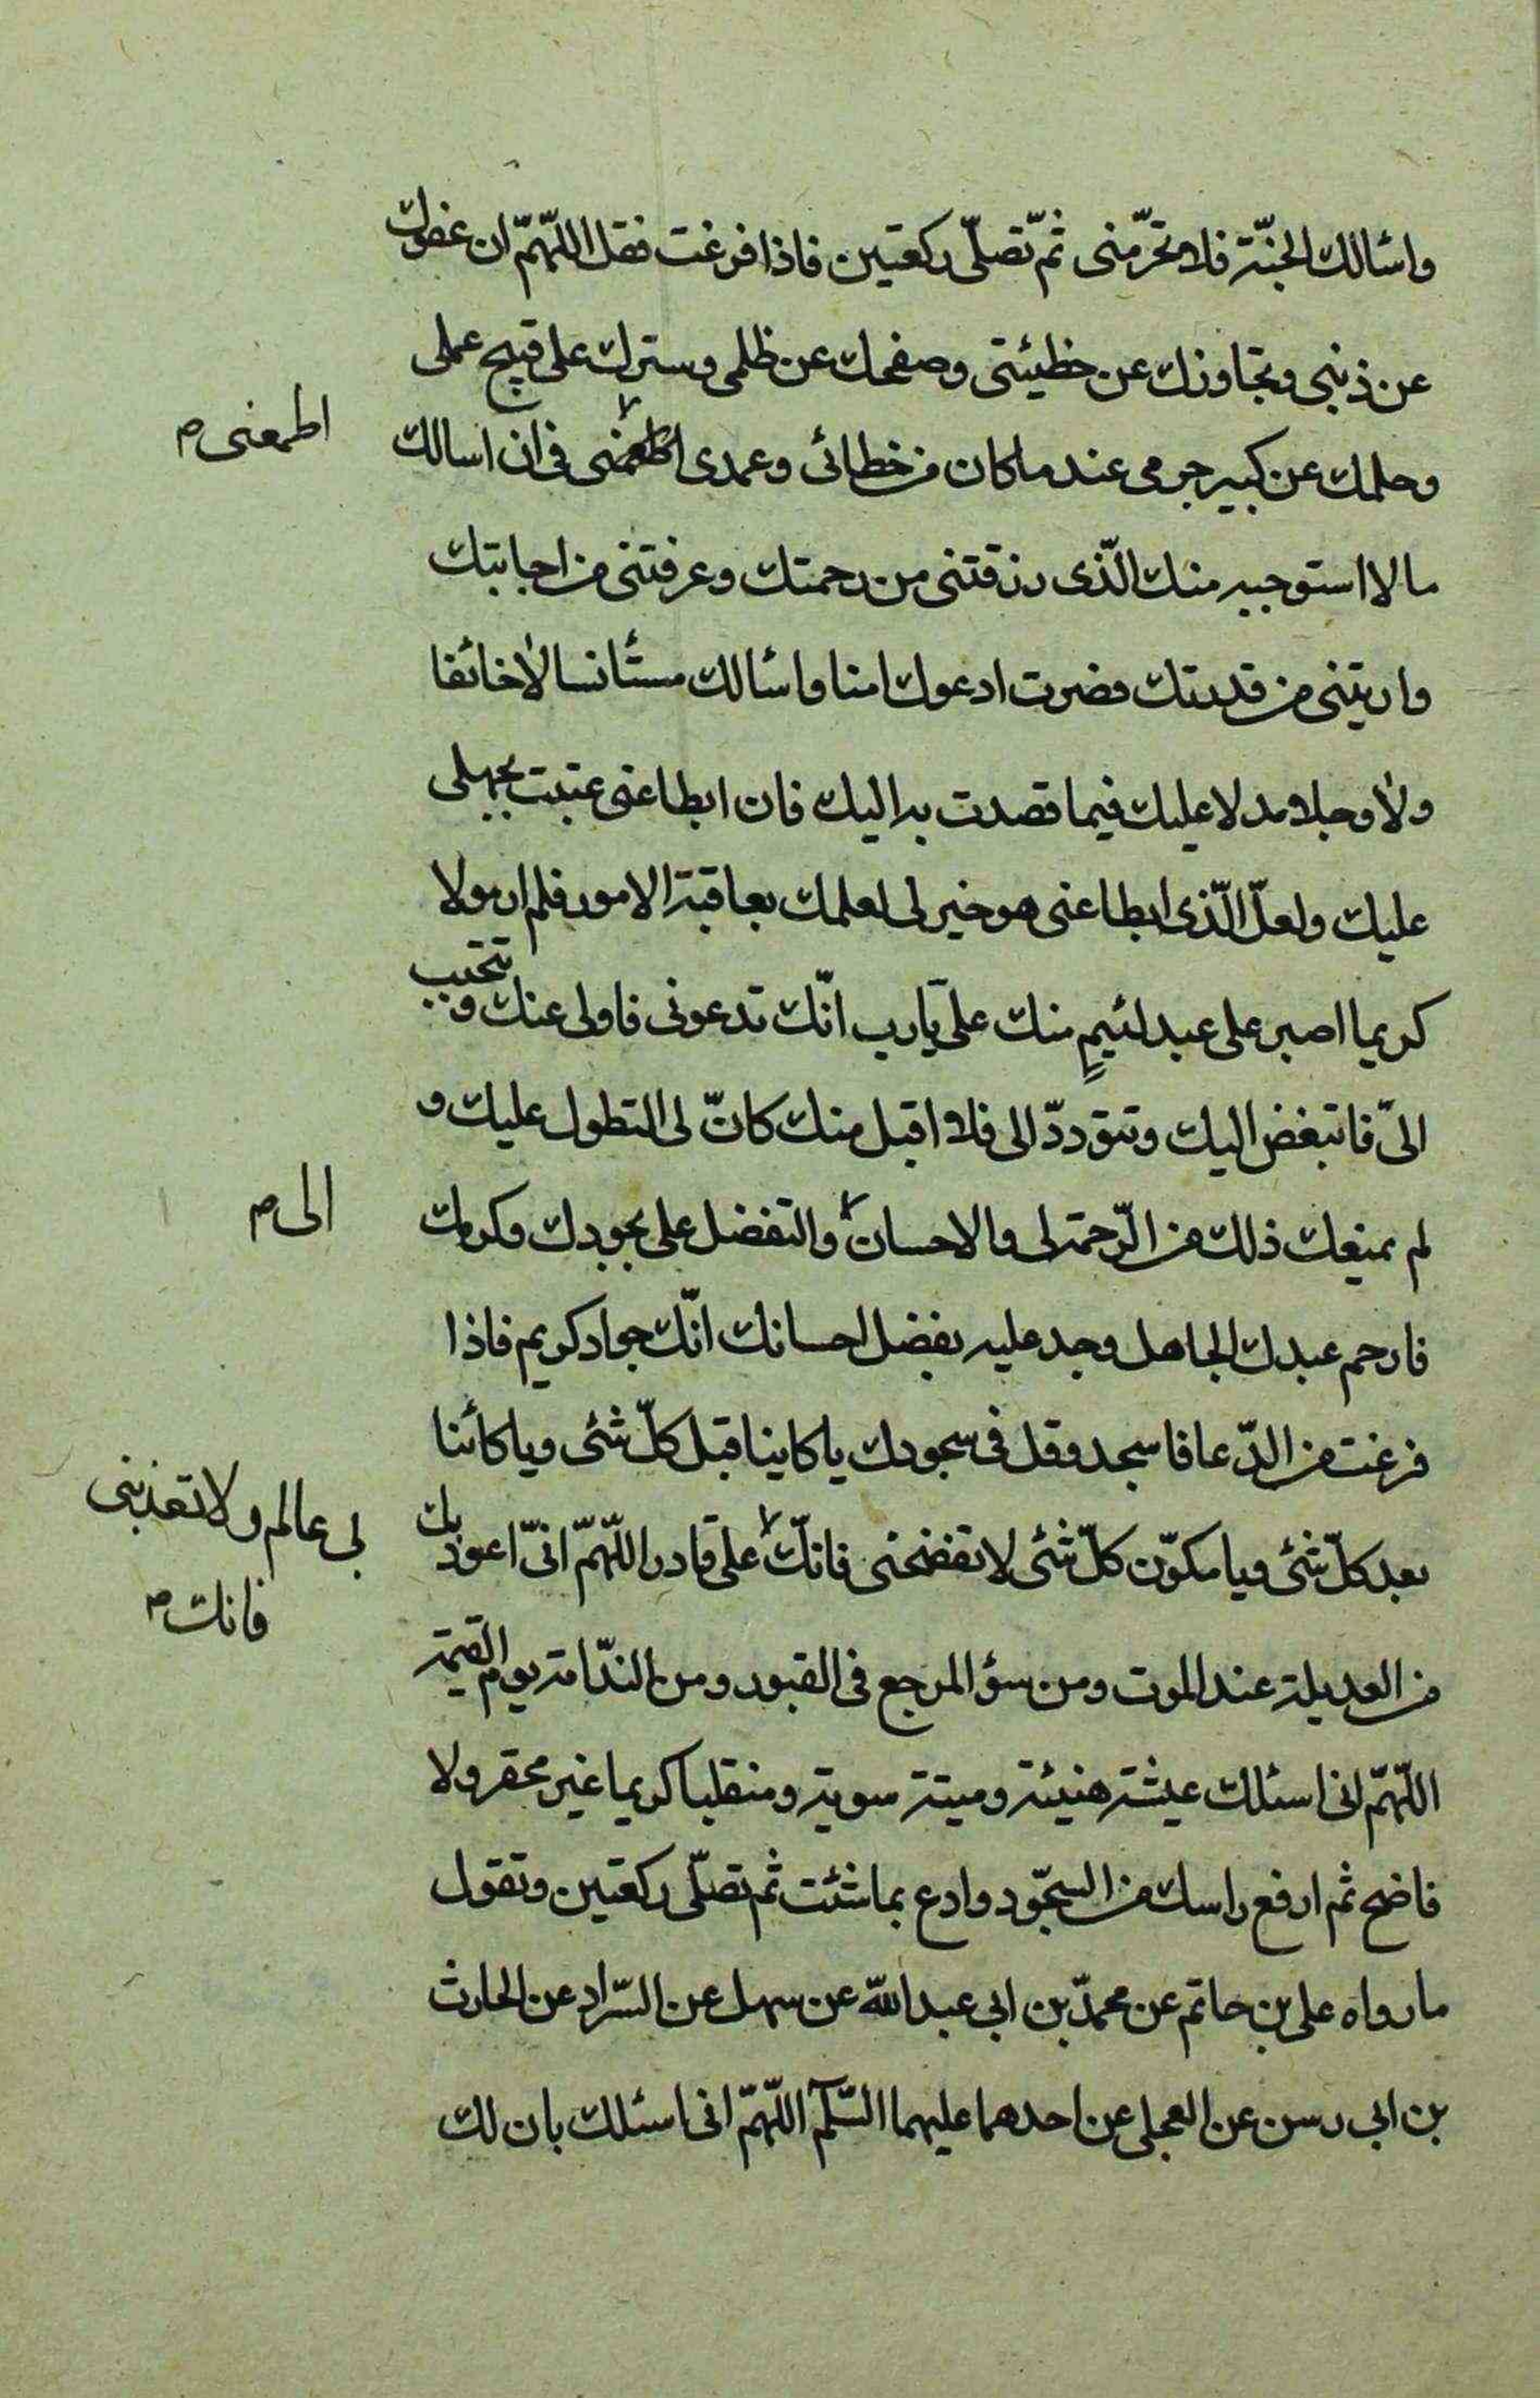 واسٔالك الجنّة فلا تحرّمنى ثمّ تصلّى ركعتين فاذا فرغت فقل اللّهمّ ان عفوك
عن ذنبى وتجاوزك عن خطيئتى وصفحك عن ظلمى وسترك على قبيح عملى
وحلمك عن كبير جرمى عند ما كان من خطائى وعمدى اطمعنى فى ان اسالك
اطمعنى م
ما لا استوجبه منك الّذى رزقتنى من رحمتك وعرفتنى من اجابتك
واريتنى من قدرتك فصرت ادعوك امنا واسٔالك مستٔانسا لا خائفا
ولا وجلا مدلا عليك فيما قصدت به اليك فان ابطا عنى عتبت بجهلى
عليك ولعلّ الّذى ابطا عنى هو خير لى لعلمك بعاقبة الامور فلم ار مولا
كريما اصبر على عبد لئيمٍ منك علىّ يارب انّك تدعونى فاولى عنك وتتحبب
الىّ فاتبغض اليك وتتودّد الى فلا اقبل منك كانّ لى التطول عليك و
لم يمنعك ذلك من الرّحمة لى والاحسان والتفضل على بجودك وكرمك
الى م
فارحم عبدك الجاهل وجد عليه بفضل احسانك انّك جواد كريم فاذا
فرغت من الدّعا فاسجد وقل فى سجودك يا كاينا قبل كلّ شئى ويا كائنا
بعد كلّ شئى ويا مكوّن كلّ شئى لا تفضحنى فانّك على قادر اللّهمّ انىّ اعوذ بك
بى عالم ولا تعذبنى
فانك م
من العديلة عند الموت ومن سؤ المرجع فى القبور ومن النّدامة يوم القيمة
اللّهمّ انى اسئلك عيشة هنيئة وميتة سوية ومنقلبا كريما غير محقر ولا
فاضح ثم ارفع راسك من السجّود وادع بما شئت ثم تصلّى ركعتين وتقول
ما رواه على بن حاتم عن محمّد بن ابى عبد اللّه عن سهل عن السّراد عن الحارث
بن ابى رسن عن العجلى عن احدهما عليهما السّلم اللّهمّ انى اسئلك بان لك